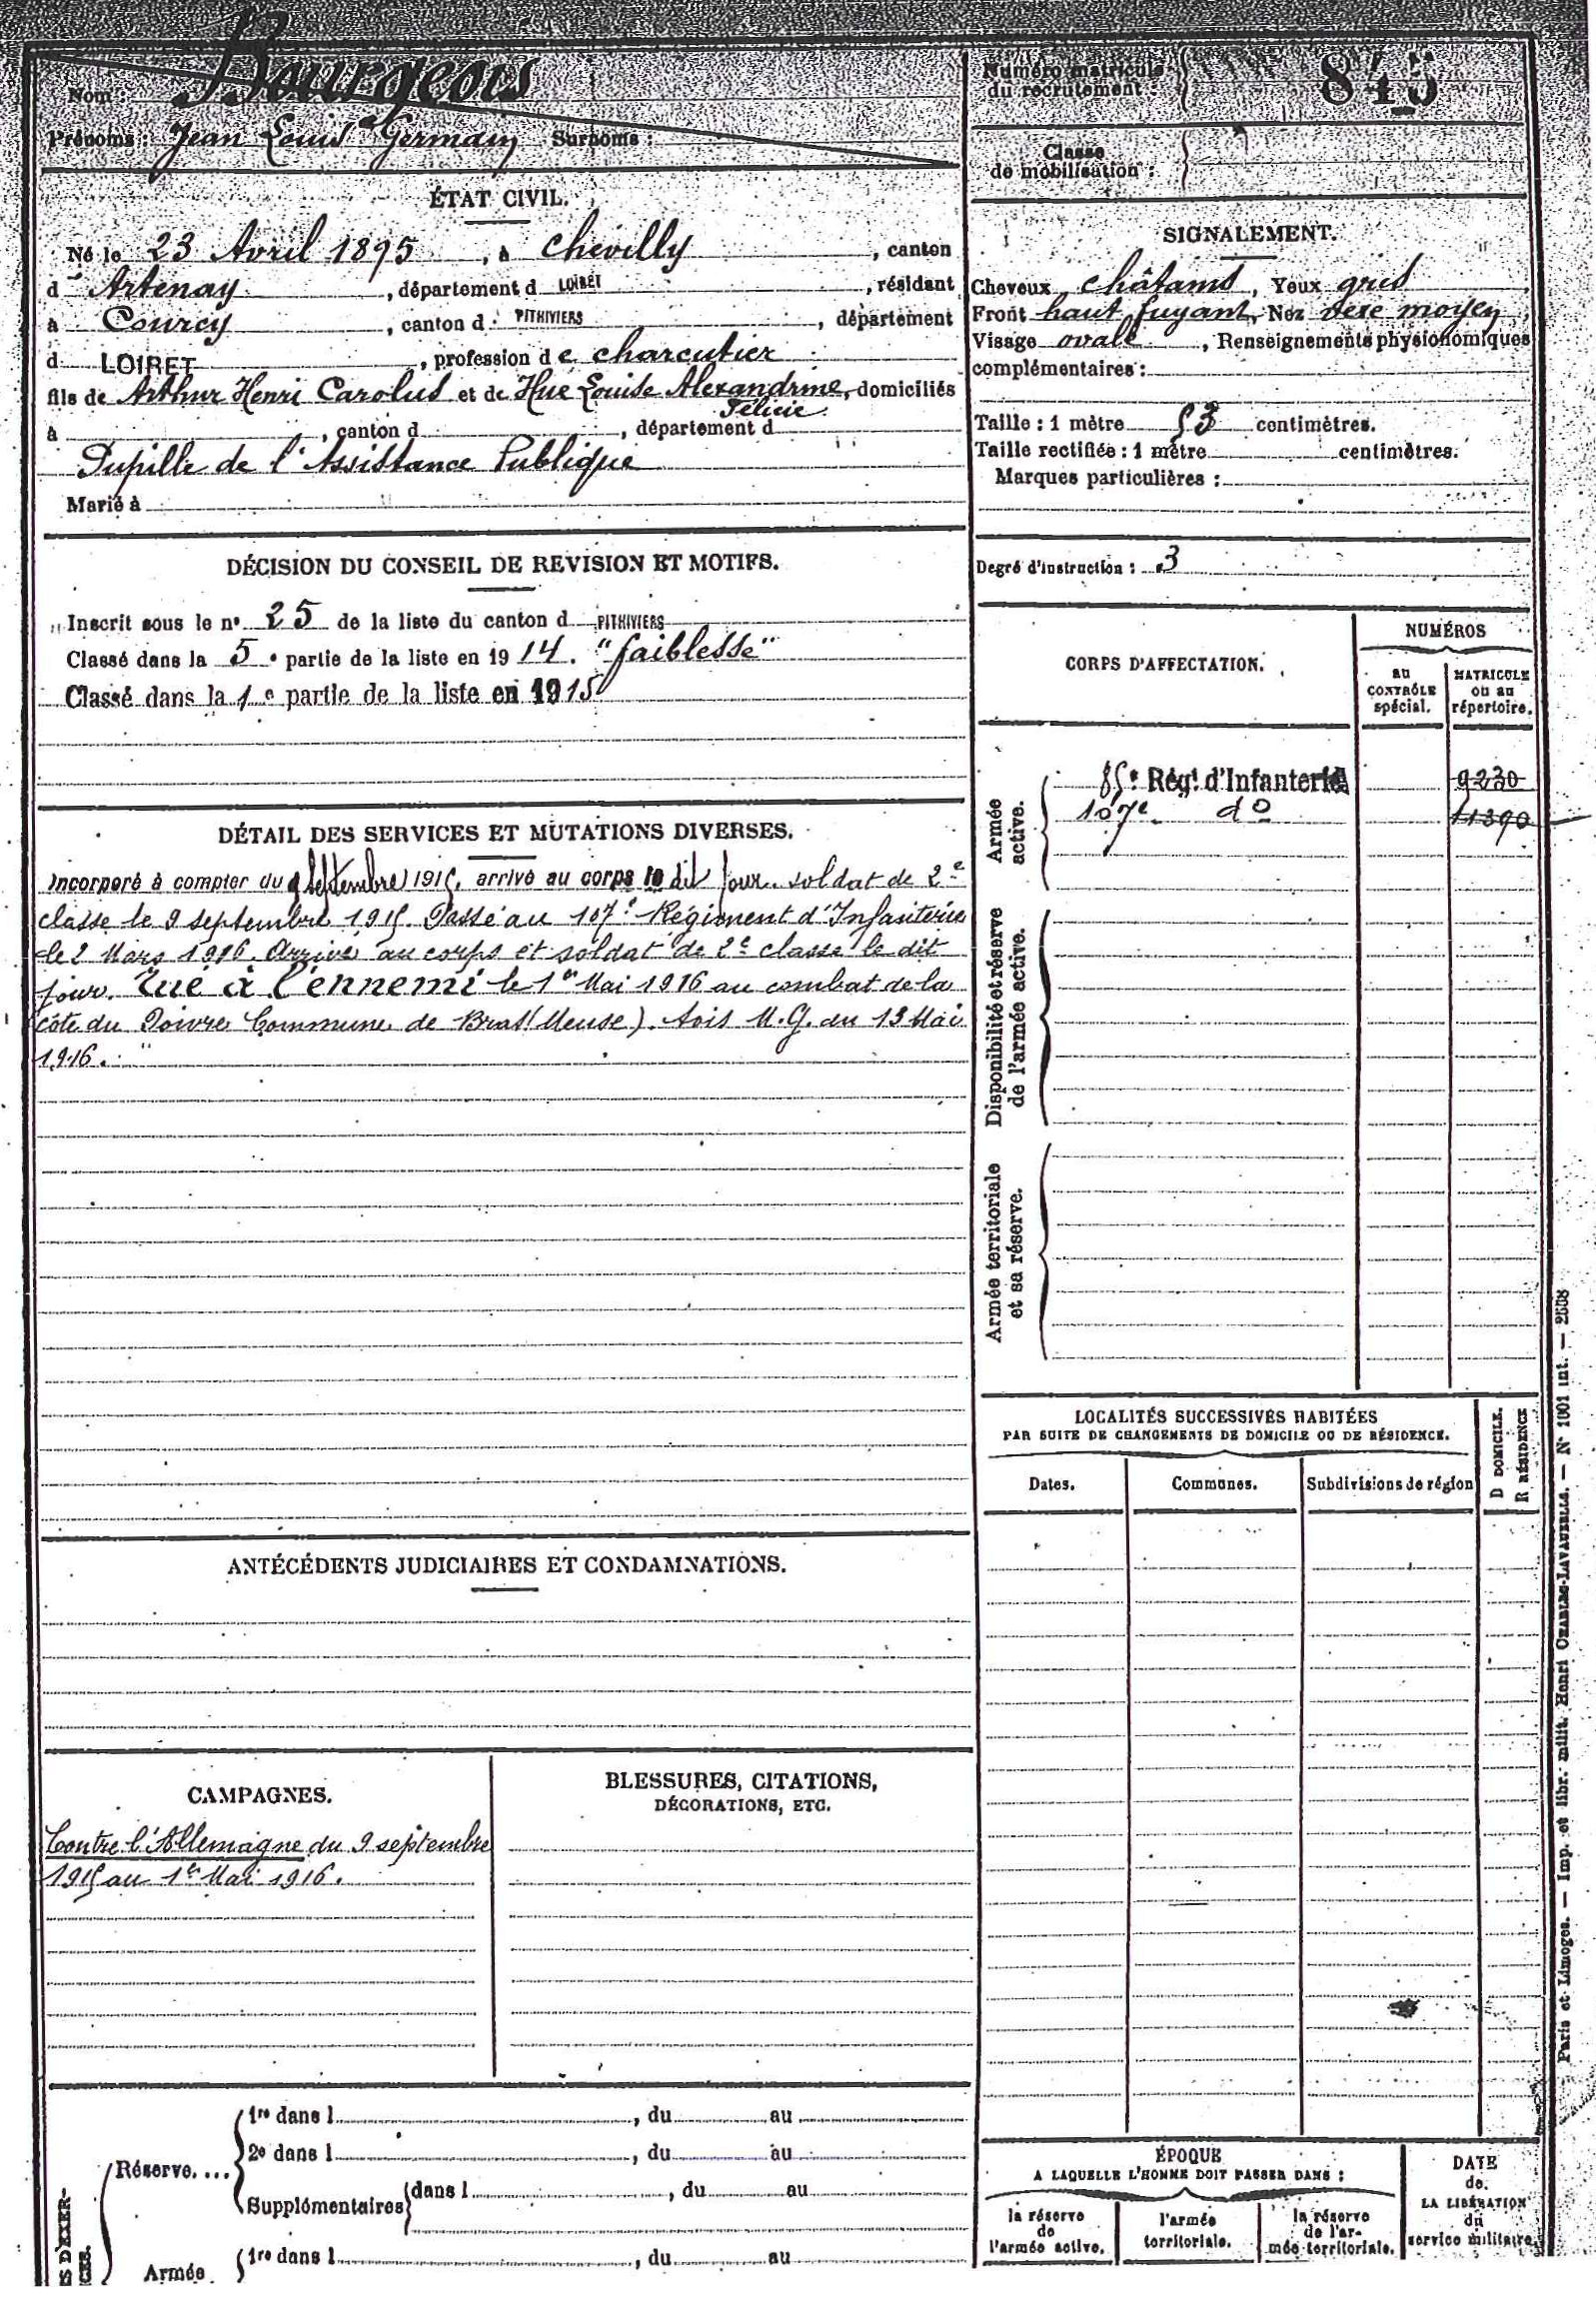 Nom : Bourgeois
Prénoms : Jean Louis Germain Surnoms :
Numéro matricule du recrutement : 845
Classe de mobilisation :
ÉTAT CIVIL.
Né le 23 Avril 1895, à Chevilly, canton
d Artenay, département d LOIRET, résidant
à Courcy, canton d PITHIVIERS, département
d LOIRET, profession de charcutier
fils de Arthur Henri Carolus et de Hue Louise Alexandrine, domiciliés
Félicie
à , canton d , département d
Pupille de l'Assistance Publique
Marié à
SIGNALEMENT.
Cheveux châtains, Yeux gris
Front haut fuyant, Nez moyen
Visage ovale, Renseignements physionomiques
complémentaires :
Taille : 1 mètre 53 centimètres.
Taille rectifiée : 1 mètre centimètres.
Marques particulières :
Degré d'instruction : 3
DÉCISION DU CONSEIL DE REVISION ET MOTIFS.
Inscrit sous le n° 25 de la liste du canton d PITHIVIERS
Classé dans la 5e partie de la liste en 1914. "faiblesse"
Classé dans la 1e partie de la liste en 1915
DÉTAIL DES SERVICES ET MUTATIONS DIVERSES.
Incorporé à compter du 9 Septembre 1915, arrivé au corps le dit jour. soldat de 2e
classe le 9 septembre 1915. Passé au 107e Régiment d'Infanterie
le 2 Mars 1916. Arrivé au corps et soldat de 2e classe le dit
jour. Tué à l'ennemi le 1er Mai 1916 au combat de la
côte du Poivre Commune de Bras (Meuse). Avis M.G. du 13 Mai
1916.
CORPS D'AFFECTATION.
NUMÉROS
au CONTRÔLE spécial.
MATRICULE ou au répertoire.
Armée active.
85e Rég.t d'Infanterie 9230
107e do 11390
Disponibilité et réserve de l'armée active.
Armée territoriale et sa réserve.
LOCALITÉS SUCCESSIVES HABITÉES
PAR SUITE DE CHANGEMENTS DE DOMICILE OU DE RÉSIDENCE.
Dates. Communes. Subdivisions de région
D DOMICILE.
R RÉSIDENCE
ANTÉCÉDENTS JUDICIAIRES ET CONDAMNATIONS.
CAMPAGNES.
Contre l'Allemagne du 9 septembre
1915 au 1er Mai 1916.
BLESSURES, CITATIONS,
DÉCORATIONS, ETC.
Réserve....
1re dans l , du au
2e dans l , du au
Supplémentaires dans l , du au
Armée
1re dans l , du au
ÉPOQUE
A LAQUELLE L'HOMME DOIT PASSER DANS :
la réserve de l'armée active.
l'armée territoriale.
la réserve de l'armée territoriale.
DATE de LA LIBÉRATION du service militaire.
Paris et Limoges. — Imp. et libr. milit. Henri CHARLES-LAVAUZELLE. — N° 1001 int. — 2508